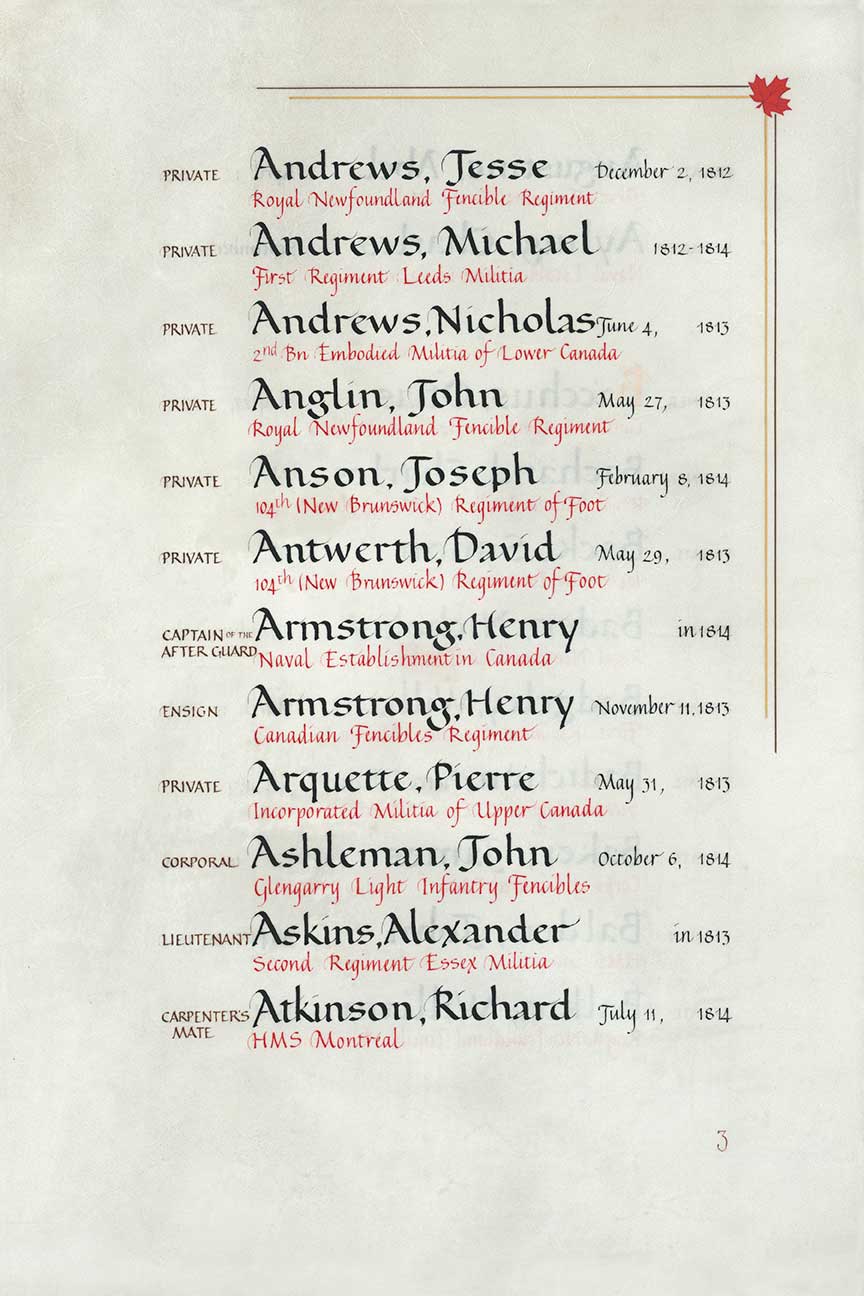 PRIVATE Andrews, Jesse December 2, 1812
Royal Newfoundland Fencible Regiment
PRIVATE Andrews, Michael 1812-1814
First Regiment Leeds Militia
PRIVATE Andrews, Nicholas June 4, 1813
2nd Bn Embodied Militia of Lower Canada
PRIVATE Anglin, John May 27, 1813
Royal Newfoundland Fencible Regiment
PRIVATE Anson, Joseph February 8, 1814
104th (New Brunswick) Regiment of Foot
PRIVATE Antwerth, David May 29, 1813
104th (New Brunswick) Regiment of Foot
CAPTAIN OF THE Armstrong, Henry in 1814
AFTER GUARD Naval Establishment in Canada
ENSIGN Armstrong, Henry November 11, 1813
Canadian Fencibles Regiment
PRIVATE Arquette, Pierre May 31, 1813
Incorporated Militia of Upper Canada
CORPORAL Ashleman, John October 6, 1814
Glengarry Light Infantry Fencibles
LIEUTENANT Askins, Alexander in 1813
Second Regiment Essex Militia
CARPENTER'S Atkinson, Richard July 11, 1814
MATE HMS Montreal
3